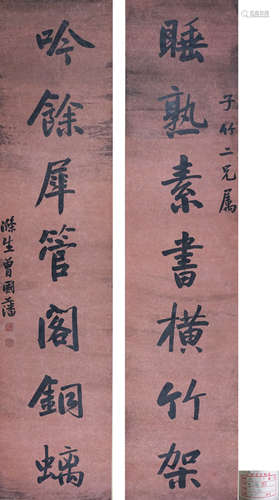 子竹二兄属
睡熟素書橫竹架
吟餘犀管閣銅螭
滌生曾國藩